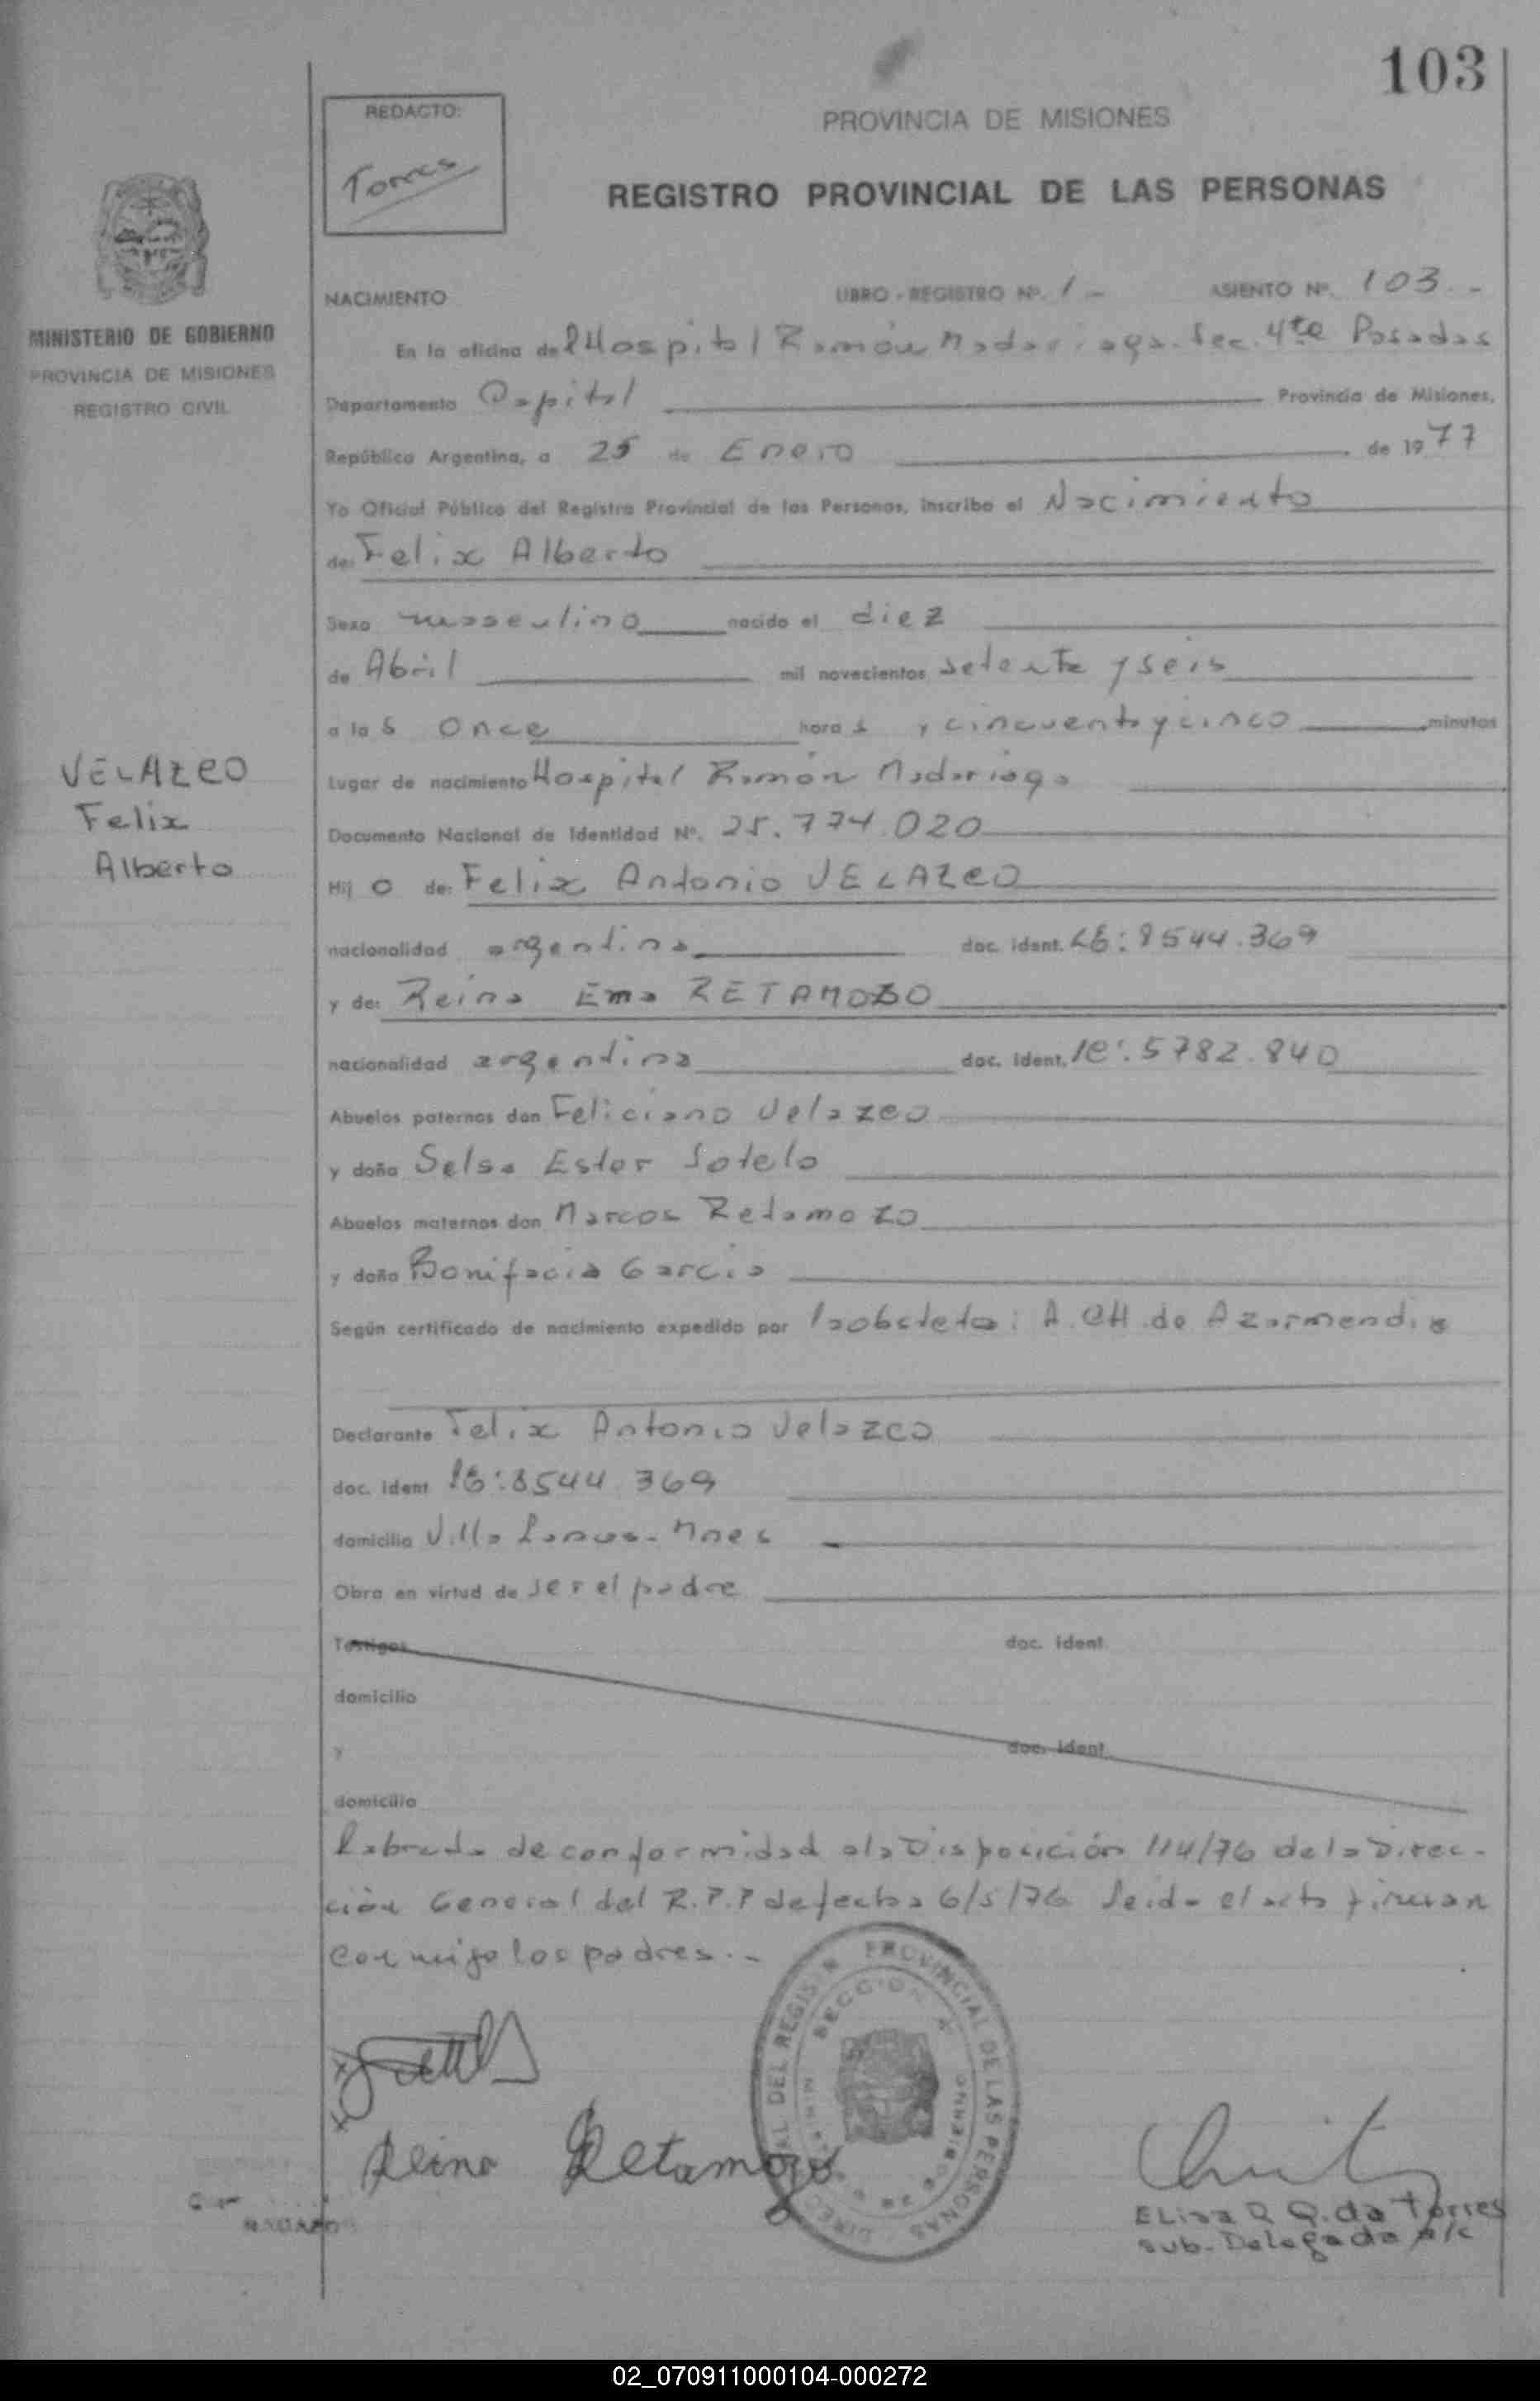 103
REDACTO:
Torres
PROVINCIA DE MISIONES
REGISTRO PROVINCIAL DE LAS PERSONAS
MINISTERIO DE GOBIERNO
PROVINCIA DE MISIONES
REGISTRO CIVIL
NACIMIENTO LIBRO - REGISTRO Nº. 1 - ASIENTO Nº. 103.-
En la oficina del Hospital Ramón Madariaga - Sec. 4ta Posadas
Departamento Capital Provincia de Misiones,
República Argentina, a 25 de Enero de 1977
Yo Oficial Público del Registro Provincial de las Personas, inscribo el Nacimiento
de: Felix Alberto
Sexo masculino nacido el diez
de Abril mil novecientos setenta y seis
a las once horas y cincuenta y cinco minutos
VELAZCO
Felix
Alberto
Lugar de nacimiento Hospital Ramón Madariaga
Documento Nacional de Identidad Nº. 25.774.020
Hijo de: Felix Antonio VELAZCO
nacionalidad argentina doc. ident. LE: 8544.369
y de: Reina Ema RETAMOZO
nacionalidad argentina doc. ident. lC: 5782.840
Abuelos paternos don Feliciano Velazco
y doña Selsa Ester Sotelo
Abuelos maternos don Marcos Retamozo
y doña Bonifacia Garcia
Según certificado de nacimiento expedido por la obsteta: A. CH. de Azarmendia
Declarante Felix Antonio Velazco
doc. ident. lE: 8544.369
domicilio Villa Lanus - Mnes
Obra en virtud de ser el padre
Testigos doc. ident.
domicilio
y doc. ident.
domicilio
Labrada de conformidad a la Disposición 114/76 de la Direc-
ción General del R.P.P de fecha 6/5/76 Leida el acta firman
conmigo los padres.-
Reina Retamozo
PROVINCIAL DE LAS PERSONAS
SECCION 4
Elisa R Q. da Torres
Sub-Delegada a/c
02_070911000104-000272